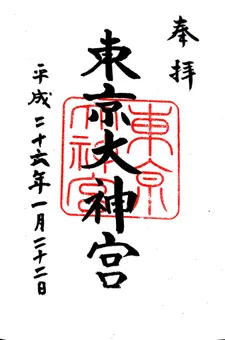 奉拝
東京大神宮
東京大神宮
平成二十六年一月二十二日